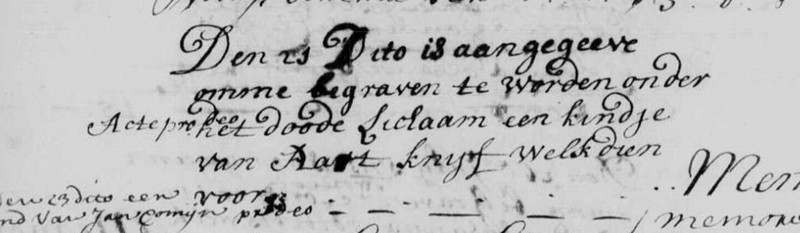 Den 23 Dito is aangegeeve
omme begraven te worden onder
Acte pro deo het doode Liclaam een kindje
van Aart knijf welk dien
voor Mem
dito een
nd Van Jan Comijn pro deo memori